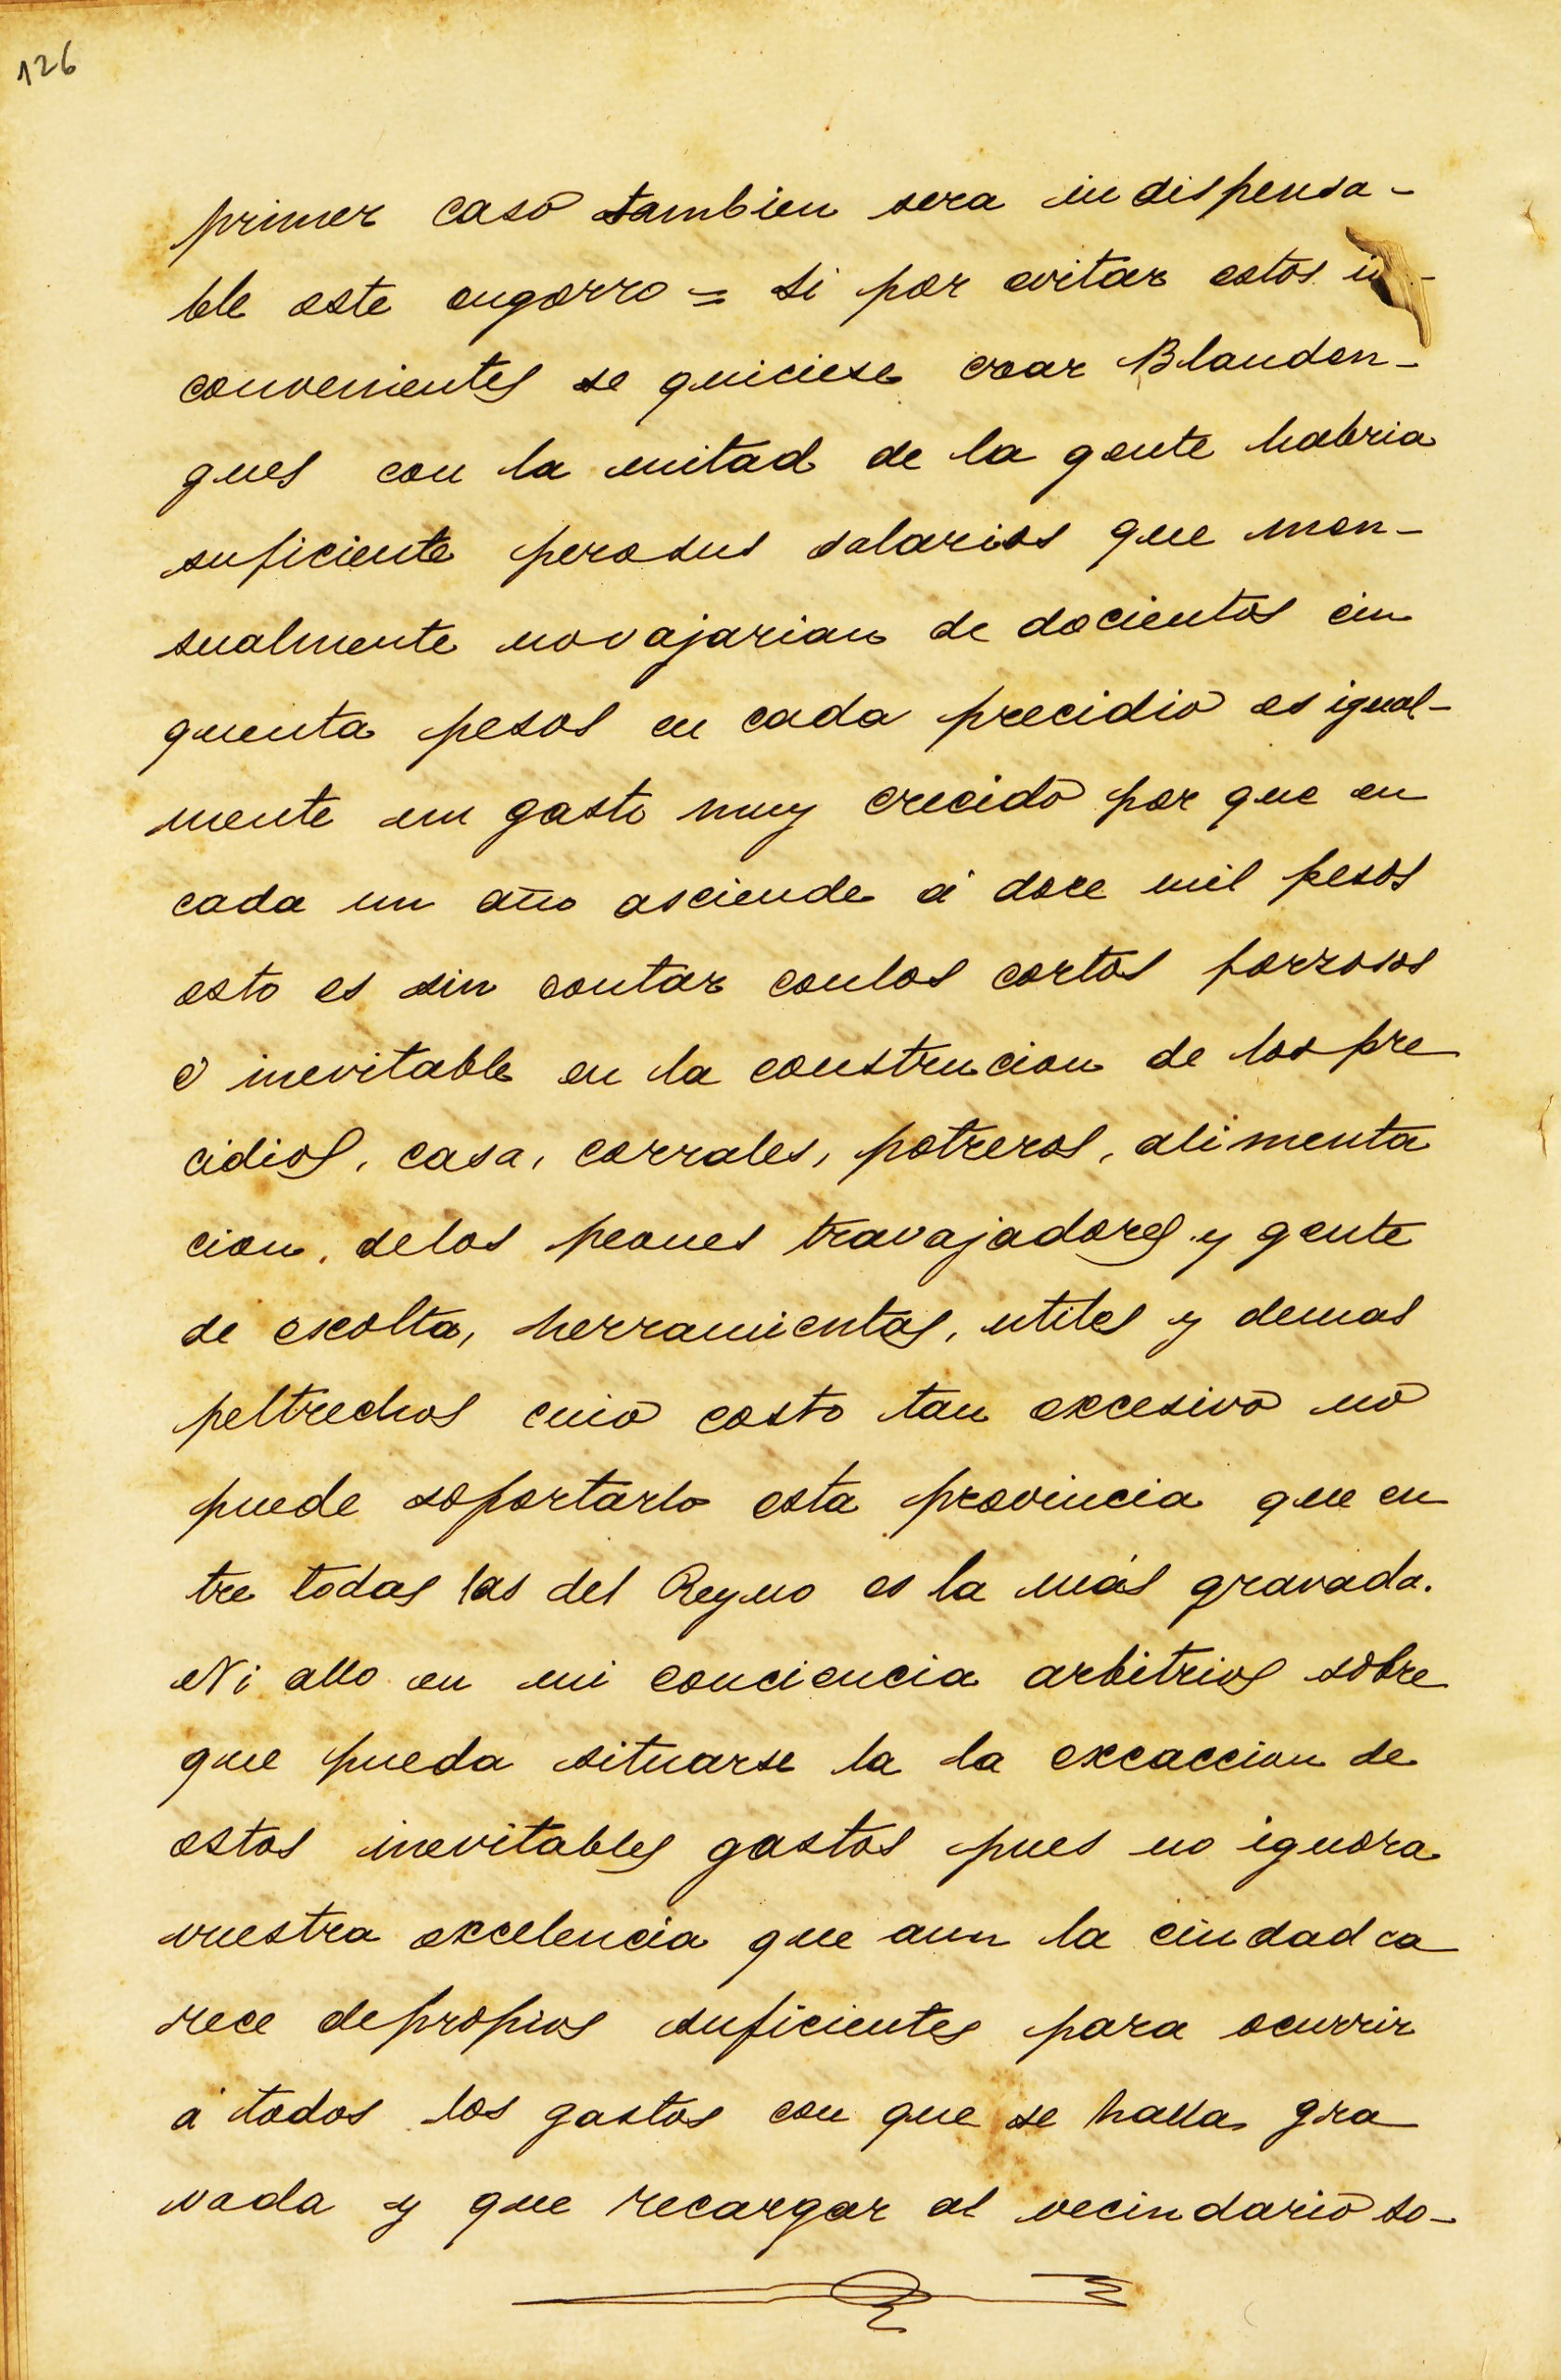 126
primer caso tambien sera indispensa-
ble este engorro = Si por evitar estos in-
convenientes se quiciese crear Blanden-
gues con la mitad de la gente habria
suficiente perosus salarios que men-
sualmente novajarian de docientos cin
quenta pesos en cada precidio es igual-
mente un gasto muy crecido por que en
cada un año asciende á doce mil pesos
esto es sin contar conlos cortos forrosos
é inevitable en la construcion de los pre
cidios, casa, corrales, potreros, alimenta
cion, delos peones travajadores y gente
de escolta, herramientas, utiles y demas
peltrechos cuio costo tan excesivo no
puede soportarlo esta provincia que en
tre todas las del Reyno es la más gravada.
Ni allo en mi conciencia arbitrios sobre
que pueda situarse la la excaccion de
estos inevitables gastos pues no ignora
vuestra excelencia que aun la ciudad ca
rece depropios suficientes para ocurrir
á todos los gastos con que se halla gra
vada y que recargar al vecindario so-